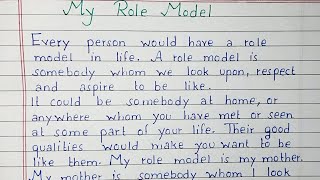 My Role Model
Every person would have a role
model in life. A role model is
somebody whom we look upon, respect
and aspire to be like.
It could be somebody at home, or
anywhere whom you have met or seen
at some part of your life. Their good
qualities would make you want to be
like them. My role model is my mother.
My mother is somebody whom I look